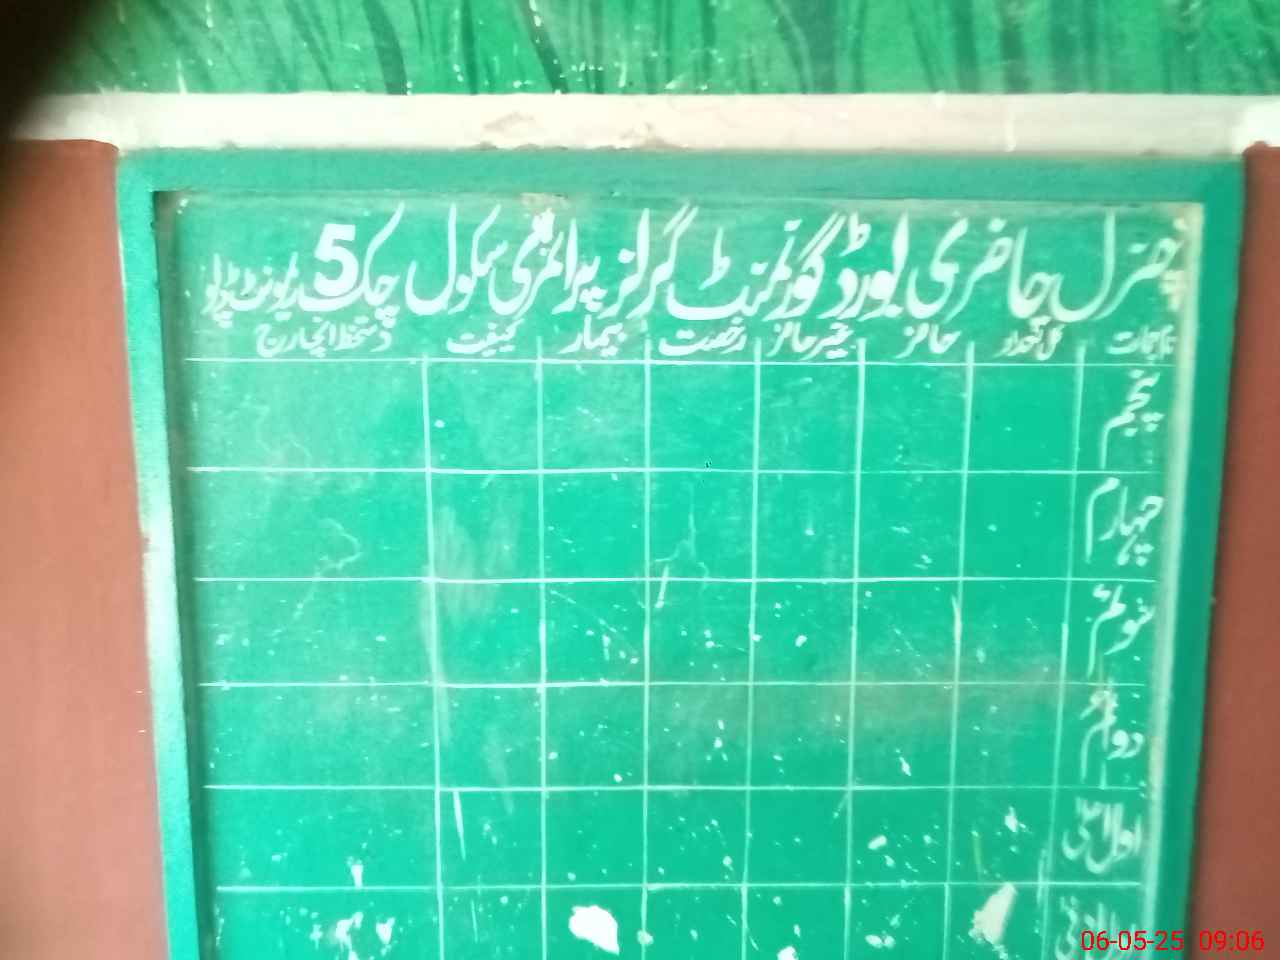 جنرل حاضری بورڈ گورنمنٹ گرلز پرائمری سکول چک 5
کل تعداد حائز غیر حائز رخصت بیمار کیفیت دستخط انچارج
پنجم
چہارم
سوئم
دوئم
اول اعلیٰ
06-05-25 09:06